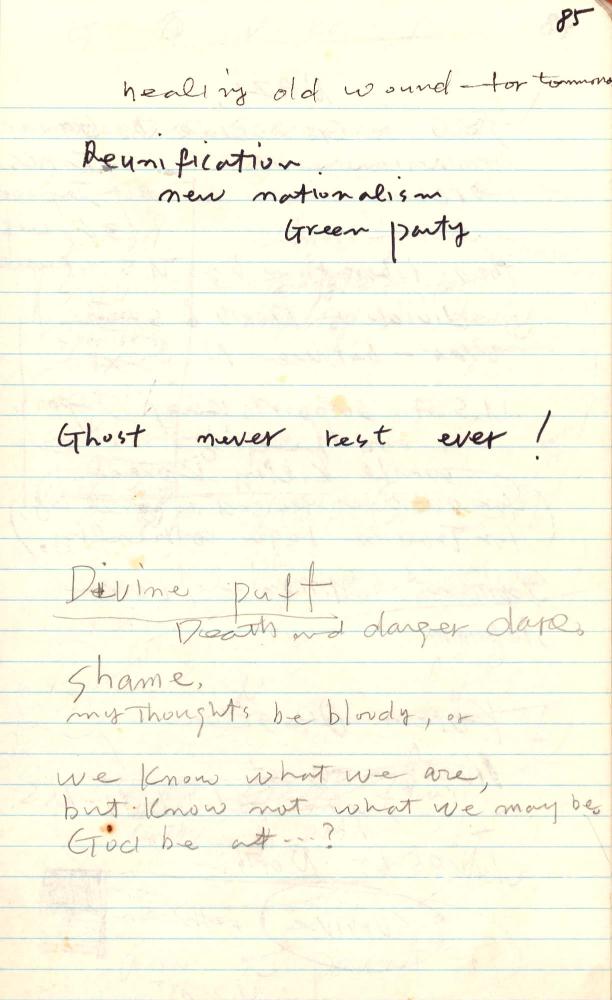 85
healing old wound — for
Reunification
new nationalism
Green party
Ghost never rest ever!
Divine puff
Death and danger dare,
Shame,
my Thoughts be bloody, or
we Know what we are,
but Know not what we may be.
God be at ---?